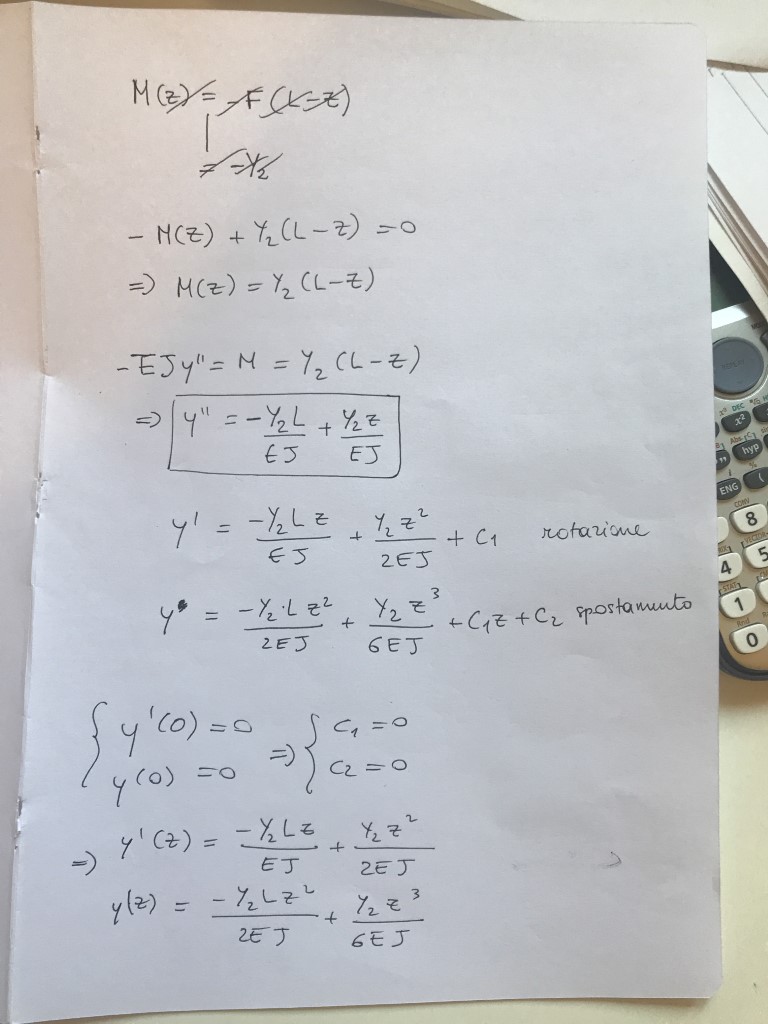 M(z) = -F (L-z)
= -Y₂
- M(z) + Y₂(L-z) = 0
=> M(z) = Y₂(L-z)
-EJy'' = M = Y₂(L-z)
=> y'' = -Y₂L/EJ + Y₂z/EJ
y' = -Y₂Lz/EJ + Y₂z²/2EJ + C₁ rotazione
y = -Y₂·Lz²/2EJ + Y₂z³/6EJ + C₁z + C₂ spostamento
{ y'(0) = 0 => { C₁ = 0
y(0) = 0 C₂ = 0
=> y'(z) = -Y₂Lz/EJ + Y₂z²/2EJ
y(z) = -Y₂Lz²/2EJ + Y₂z³/6EJ
REPLAY
DEC
x²
hyp
ENG
(
8
4
5
1
0